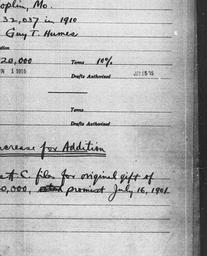 oplin, Mo.
32,037 in 1910
Guy T. Humes
20,000 Terms 10%
Drafts Authorized
Terms
Drafts Authorized
Increase for Addition
C. files for original gift of
0,000, promised July 16, 1901